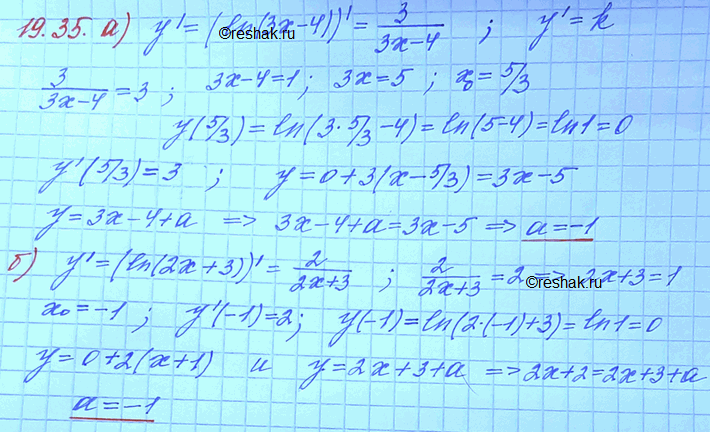 19.35. а) y' = (ln(3x-4))' = 3/(3x-4) ; y' = k
©reshak.ru
3/(3x-4) = 3 ; 3x-4=1 ; 3x=5 ; x₀ = 5/3
y(5/3) = ln(3·5/3-4) = ln(5-4) = ln1 = 0
y'(5/3) = 3 ; y = 0+3(x-5/3) = 3x-5
y = 3x-4+a => 3x-4+a = 3x-5 => a = -1
б) y' = (ln(2x+3))' = 2/(2x+3) ; 2/(2x+3) = 2 => 2x+3 = 1
©reshak.ru
x₀ = -1 ; y'(-1) = 2; y(-1) = ln(2·(-1)+3) = ln1 = 0
y = 0+2(x+1) и y = 2x+3+a => 2x+2 = 2x+3+a
a = -1